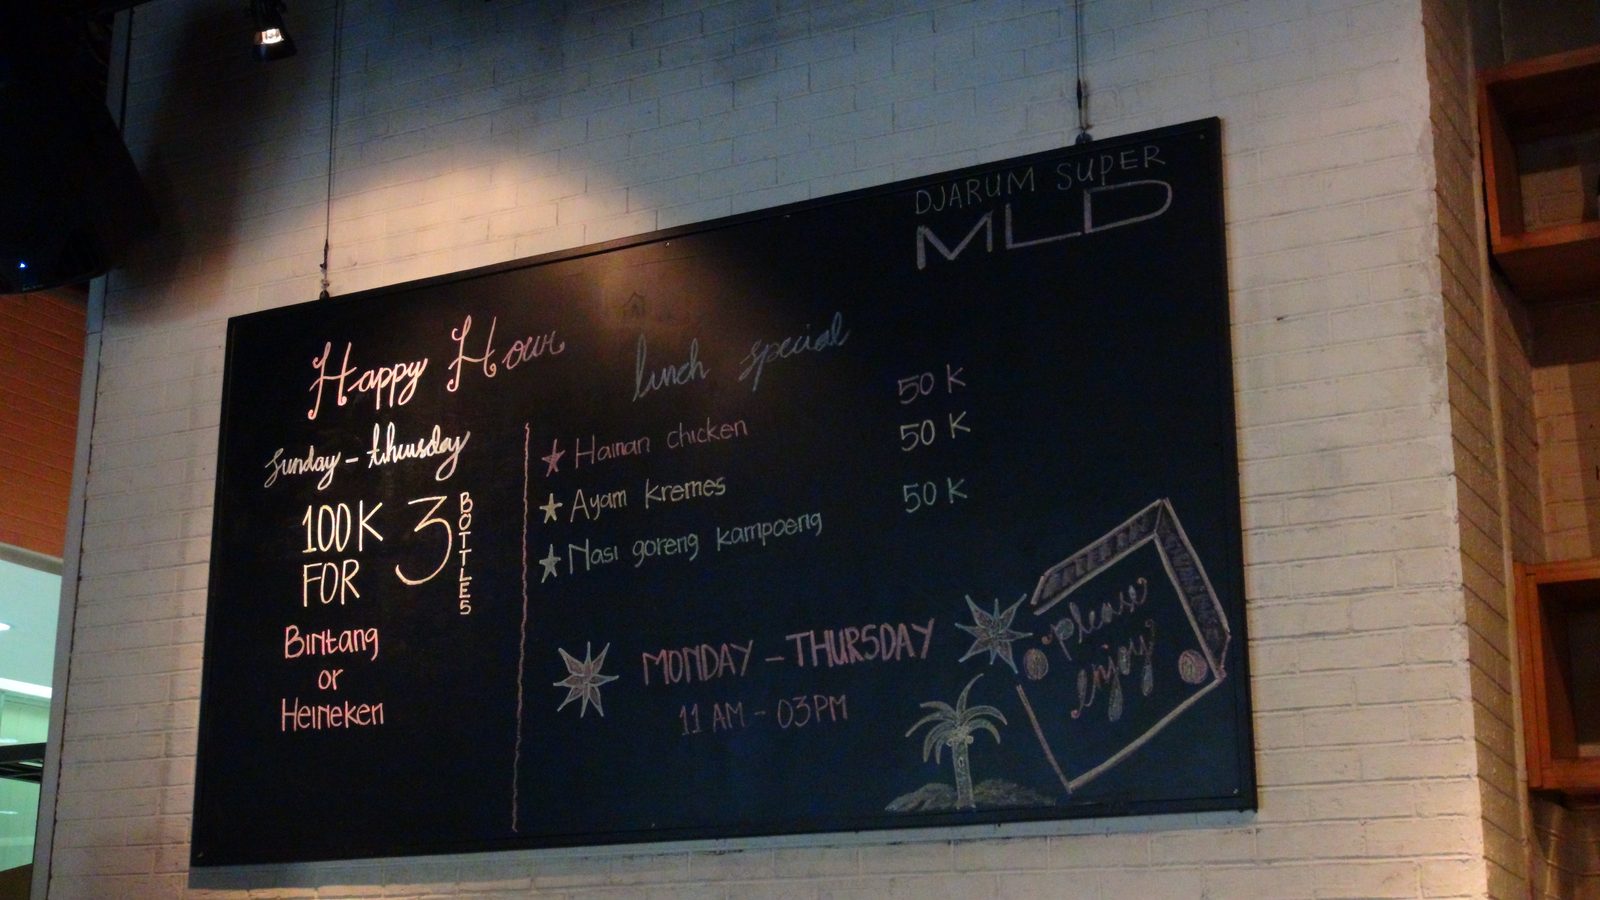 DJARUM SUPER
MLD
Happy Hour
Sunday - thursday
100K
FOR
3
BOTTLES
Bintang
or
Heineken
lunch special
Hainan chicken 50 K
Ayam kremes 50 K
Nasi goreng kampoeng 50 K
MONDAY - THURSDAY
11 AM - 03PM
please
enjoy